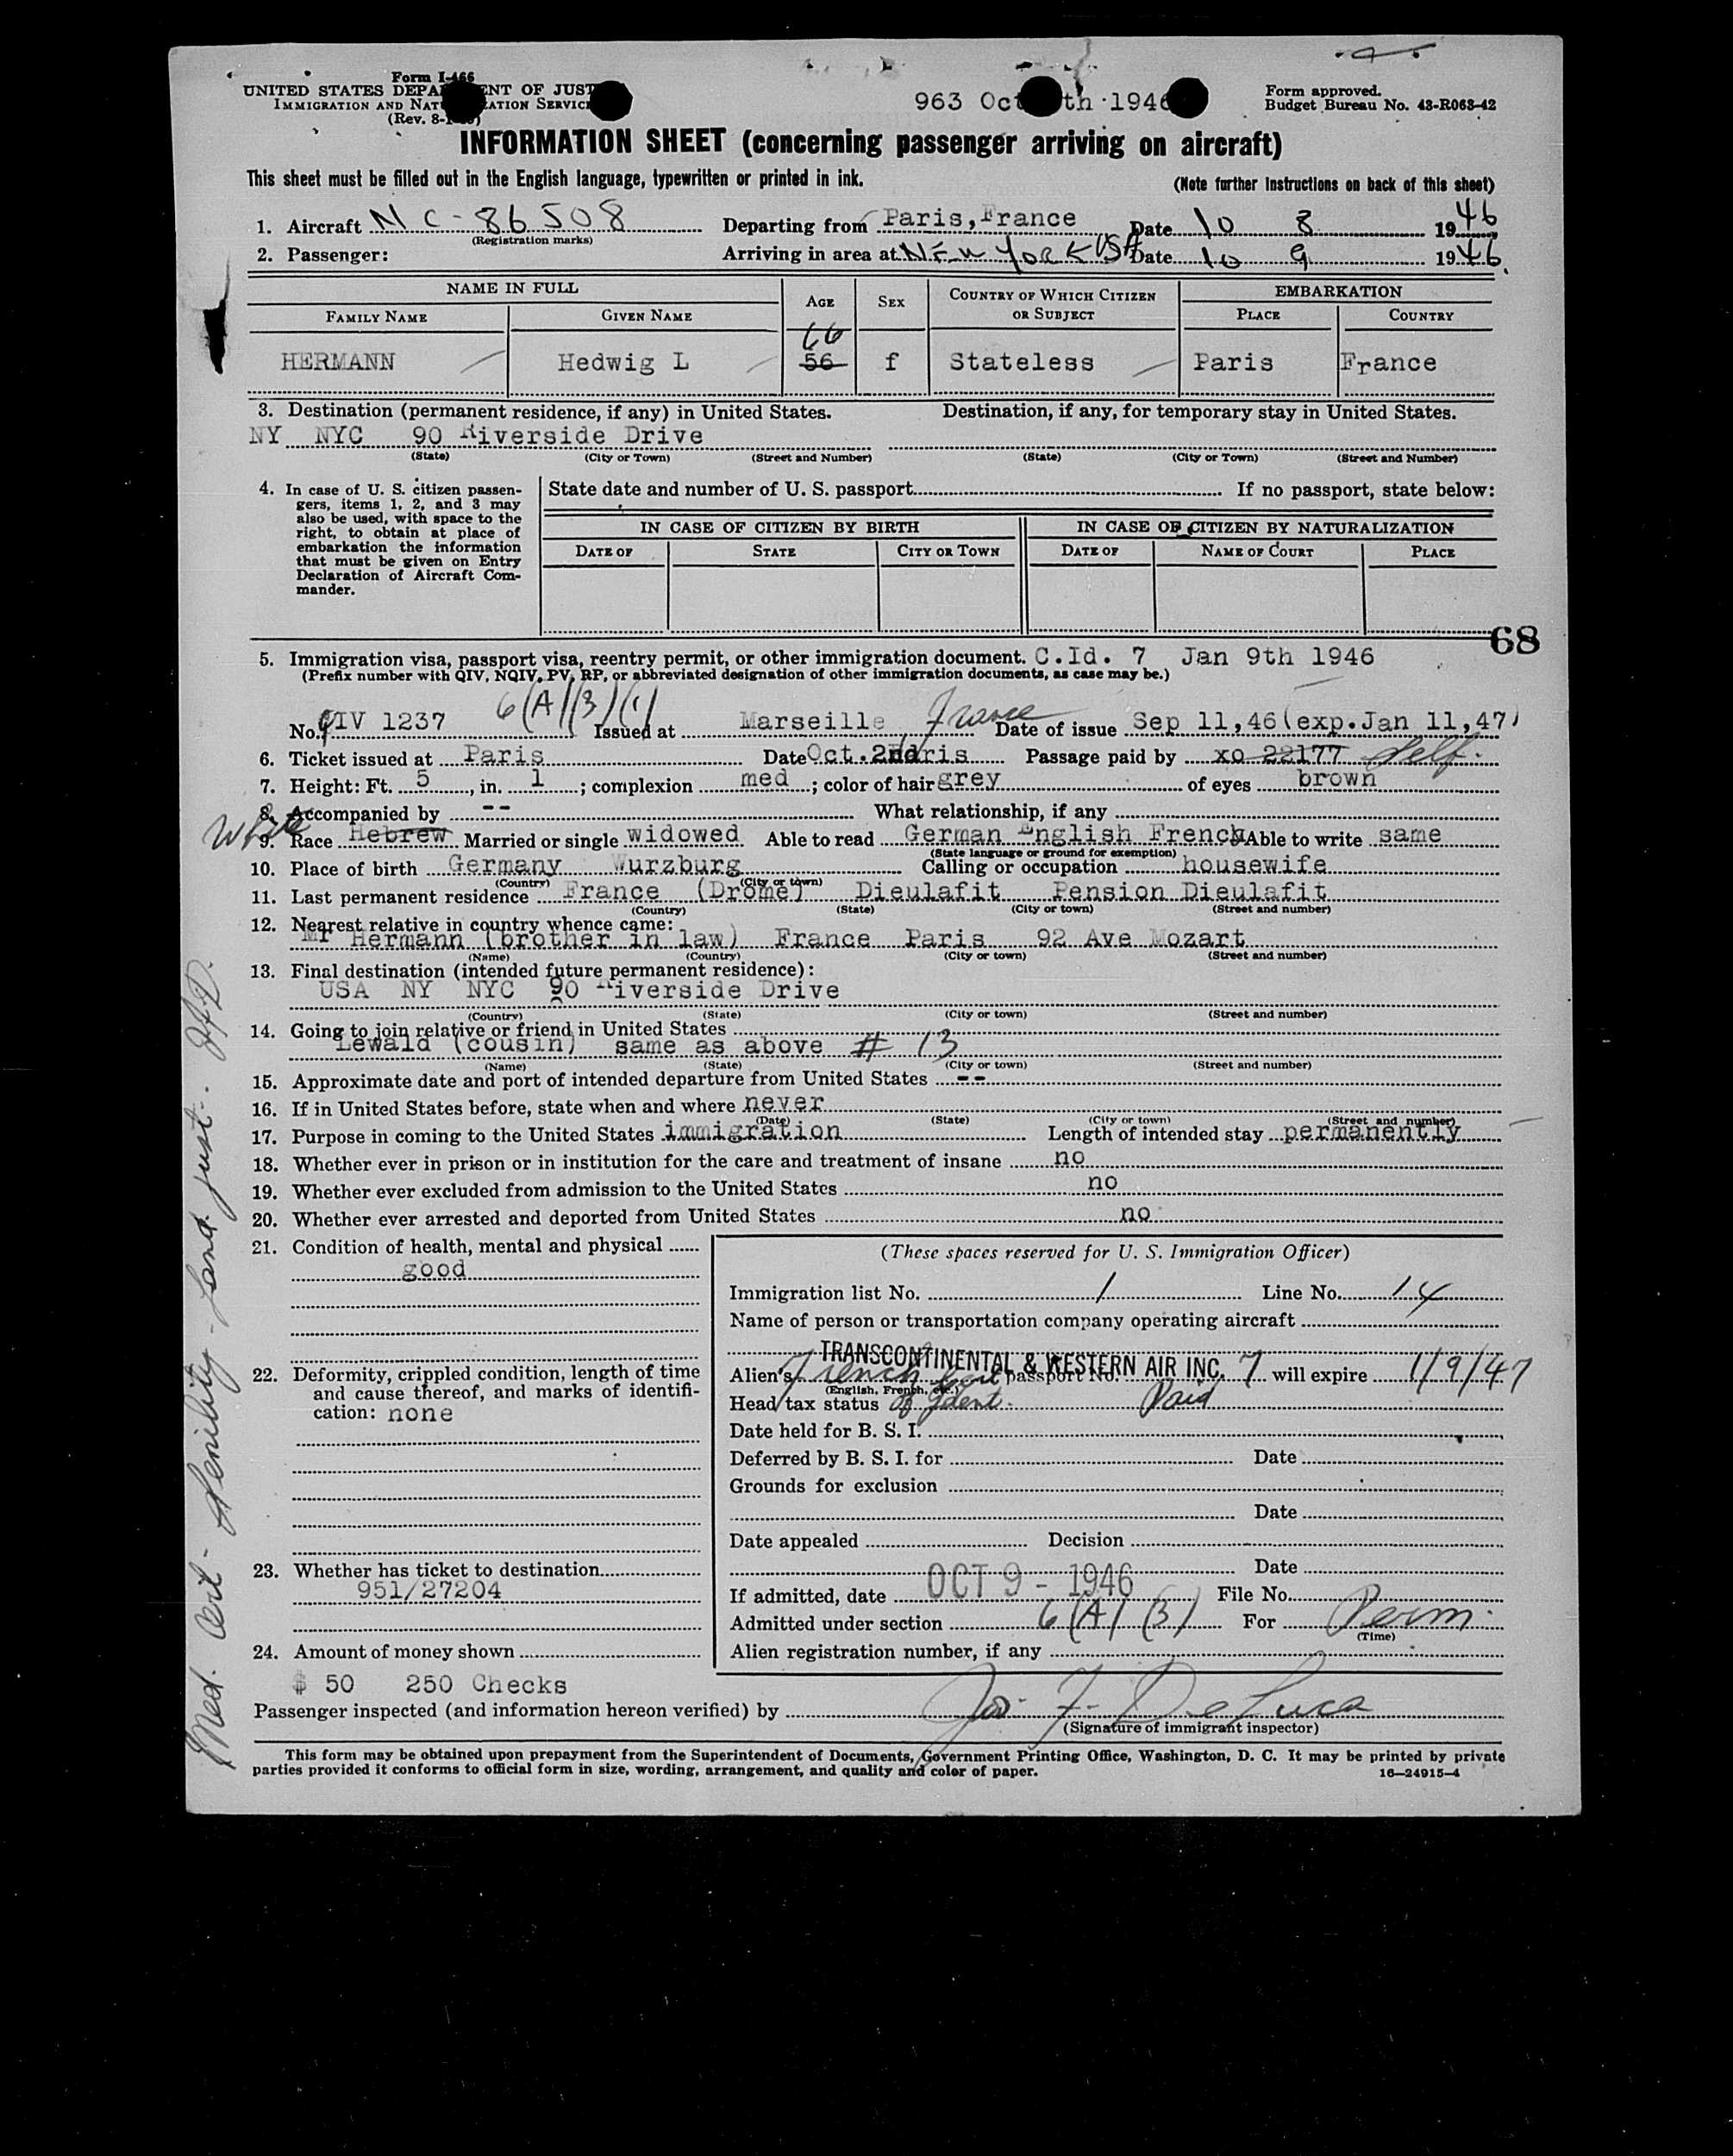 Form I-466
UNITED STATES DEPA ENT OF JUST
IMMIGRATION AND NAT ATION SERVIC
(Rev. 8-1- )
963 Oct th 1946
Form approved.
Budget Bureau No. 43-R063-42
INFORMATION SHEET (concerning passenger arriving on aircraft)
This sheet must be filled out in the English language, typewritten or printed in ink.
(Note further instructions on back of this sheet)
1. Aircraft NC-86508 Departing from Paris, France Date 10 8 1946
(Registration marks)
2. Passenger: Arriving in area at NEW YORK USA Date 10 9 1946.
NAME IN FULL AGE SEX COUNTRY OF WHICH CITIZEN OR SUBJECT EMBARKATION
FAMILY NAME GIVEN NAME PLACE COUNTRY
66
HERMANN Hedwig L 56 f Stateless Paris France
3. Destination (permanent residence, if any) in United States. Destination, if any, for temporary stay in United States.
NY NYC 90 Riverside Drive
(State) (City or Town) (Street and Number) (State) (City or Town) (Street and Number)
4. In case of U. S. citizen passen-
gers, items 1, 2, and 3 may
also be used, with space to the
right, to obtain at place of
embarkation the information
that must be given on Entry
Declaration of Aircraft Com-
mander.
State date and number of U. S. passport If no passport, state below:
IN CASE OF CITIZEN BY BIRTH IN CASE OF CITIZEN BY NATURALIZATION
DATE OF STATE CITY OR TOWN DATE OF NAME OF COURT PLACE
68
5. Immigration visa, passport visa, reentry permit, or other immigration document. C.Id. 7 Jan 9th 1946
(Prefix number with QIV, NQIV, PV, RP, or abbreviated designation of other immigration documents, as case may be.)
6(A)(3)(1)
No. QIV 1237 Issued at Marseille France Date of issue Sep 11,46(exp.Jan 11,47)
6. Ticket issued at Paris Date Oct.2nd ris Passage paid by xo 22177 Self.
7. Height: Ft. 5, in. 1; complexion med; color of hair grey of eyes brown
8. Accompanied by -- What relationship, if any
White
9. Race Hebrew Married or single widowed Able to read German English French Able to write same
(State language or ground for exemption)
10. Place of birth Germany Wurzburg Calling or occupation housewife
(Country) (City or town)
11. Last permanent residence France (Drome) Dieulafit Pension Dieulafit
(Country) (State) (City or town) (Street and number)
12. Nearest relative in country whence came:
Mr Hermann (brother in law) France Paris 92 Ave Mozart
(Name) (Country) (City or town) (Street and number)
13. Final destination (intended future permanent residence):
USA NY NYC 90 Riverside Drive
(Country) (State) (City or town) (Street and number)
14. Going to join relative or friend in United States
Lewald (cousin) same as above # 13
(Name) (State) (City or town) (Street and number)
15. Approximate date and port of intended departure from United States --
16. If in United States before, state when and where never
(Date) (State) (City or town) (Street and number)
17. Purpose in coming to the United States immigration Length of intended stay permanently
18. Whether ever in prison or in institution for the care and treatment of insane no
19. Whether ever excluded from admission to the United States no
20. Whether ever arrested and deported from United States no
21. Condition of health, mental and physical
good
22. Deformity, crippled condition, length of time
and cause thereof, and marks of identifi-
cation: none
23. Whether has ticket to destination
951/27204
24. Amount of money shown
$ 50 250 Checks
(These spaces reserved for U. S. Immigration Officer)
Immigration list No. 1 Line No. 14
Name of person or transportation company operating aircraft
TRANSCONTINENTAL & WESTERN AIR INC.
Alien's French Cert passport No. 7 will expire 1/9/47
(English, French, etc.)
Head tax status of Ident. Paid
Date held for B. S. I.
Deferred by B. S. I. for Date
Grounds for exclusion
Date
Date appealed Decision
Date
If admitted, date OCT 9 - 1946 File No.
Admitted under section 6(A)(3) For Perm.
(Time)
Alien registration number, if any
Passenger inspected (and information hereon verified) by Jos. F. DeLuca
(Signature of immigrant inspector)
This form may be obtained upon prepayment from the Superintendent of Documents, Government Printing Office, Washington, D. C. It may be printed by private
parties provided it conforms to official form in size, wording, arrangement, and quality and color of paper. 16—24915-4
Med. Cert - Senility - Land. just.